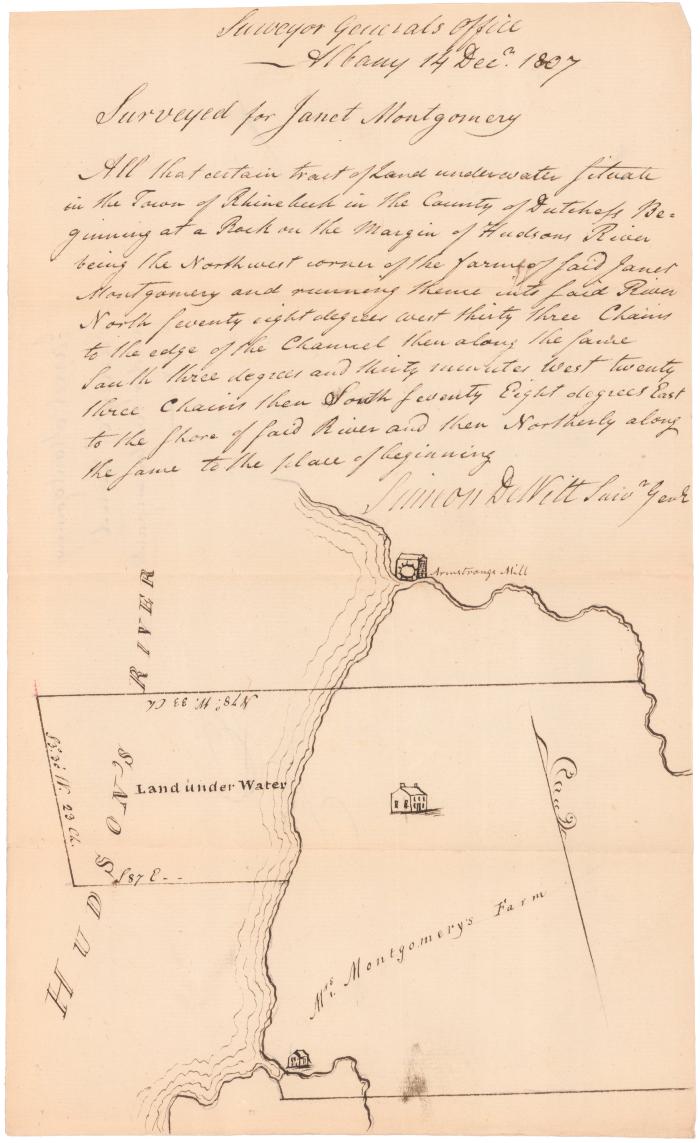 Surveyor Generals Office
Albany 14 Decr. 1807
Surveyed for Janet Montgomery
All that certain tract of Land under water Situate
in the Town of Rhinebeck in the County of Dutchess Be-
ginning at a Rock on the Margin of Hudsons River
being the Northwest corner of the farm of said Janet
Montgomery and running thence into said River
North Seventy eight degrees west thirty three Chains
to the edge of the Channel then along the same
South three degrees and thirty minutes West twenty
three Chains then South Seventy Eight degrees East
to the Shore of said River and then Northerly along
the same to the place of beginning
Simeon DeWitt Survr. Genl.
Armstrongs Mill
HUDSONS RIVER
N 78°. W. 33 Ch
S 3°. 30' W. 23 Ch.
Land under Water
S 87 E - -
Mrs. Montgomery's Farm